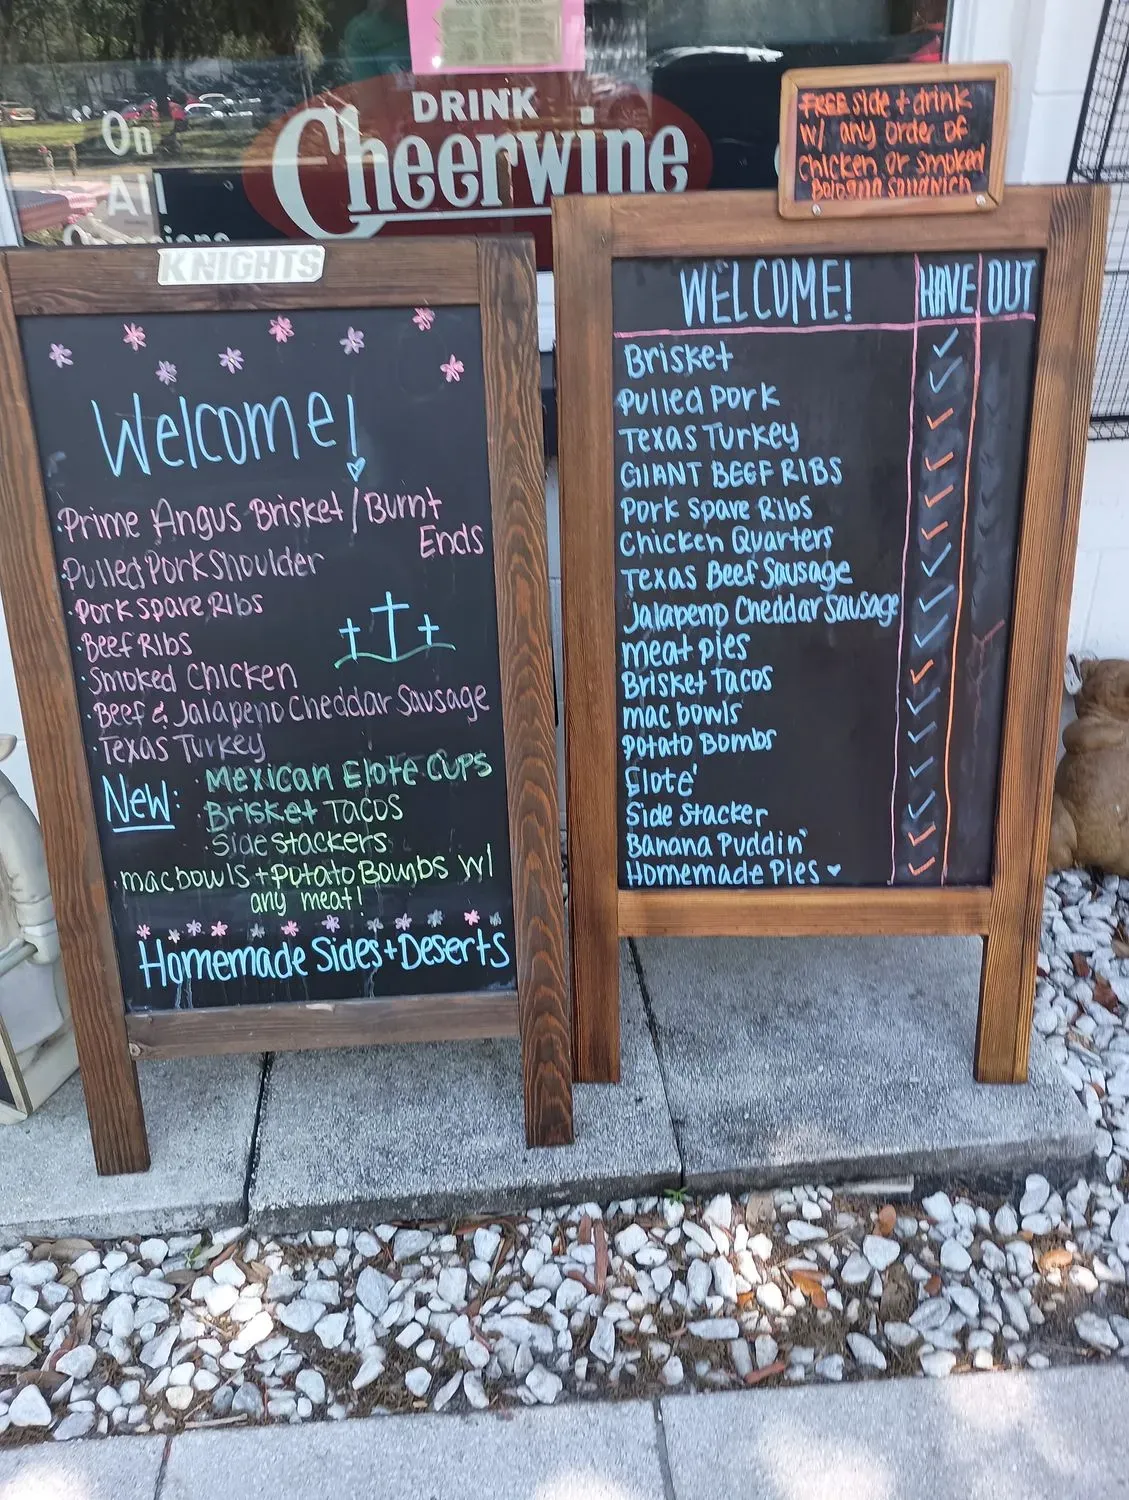 DRINK
Cheerwine
On
All
KNIGHTS
Welcome!
·Prime Angus Brisket/Burnt
Ends
·Pulled Pork Shoulder
·Pork Spare Ribs
·Beef Ribs
·Smoked Chicken
·Beef & Jalapeno Cheddar Sausage
·Texas Turkey
New: ·Mexican Elote Cups
·Brisket Tacos
·Side stackers
·mac bowls + Potato Bombs w/
any meat!
Homemade Sides + Deserts
FREE side + drink
w/ any order of
chicken or smoked
Bologna sandwich
WELCOME! HAVE OUT
Brisket
Pulled Pork
Texas Turkey
GIANT BEEF RIBS
Pork Spare Ribs
Chicken Quarters
Texas Beef Sausage
Jalapeno Cheddar Sausage
meat pies
Brisket Tacos
mac bowls
Potato Bombs
Elote'
Side Stacker
Banana Puddin'
Homemade Pies